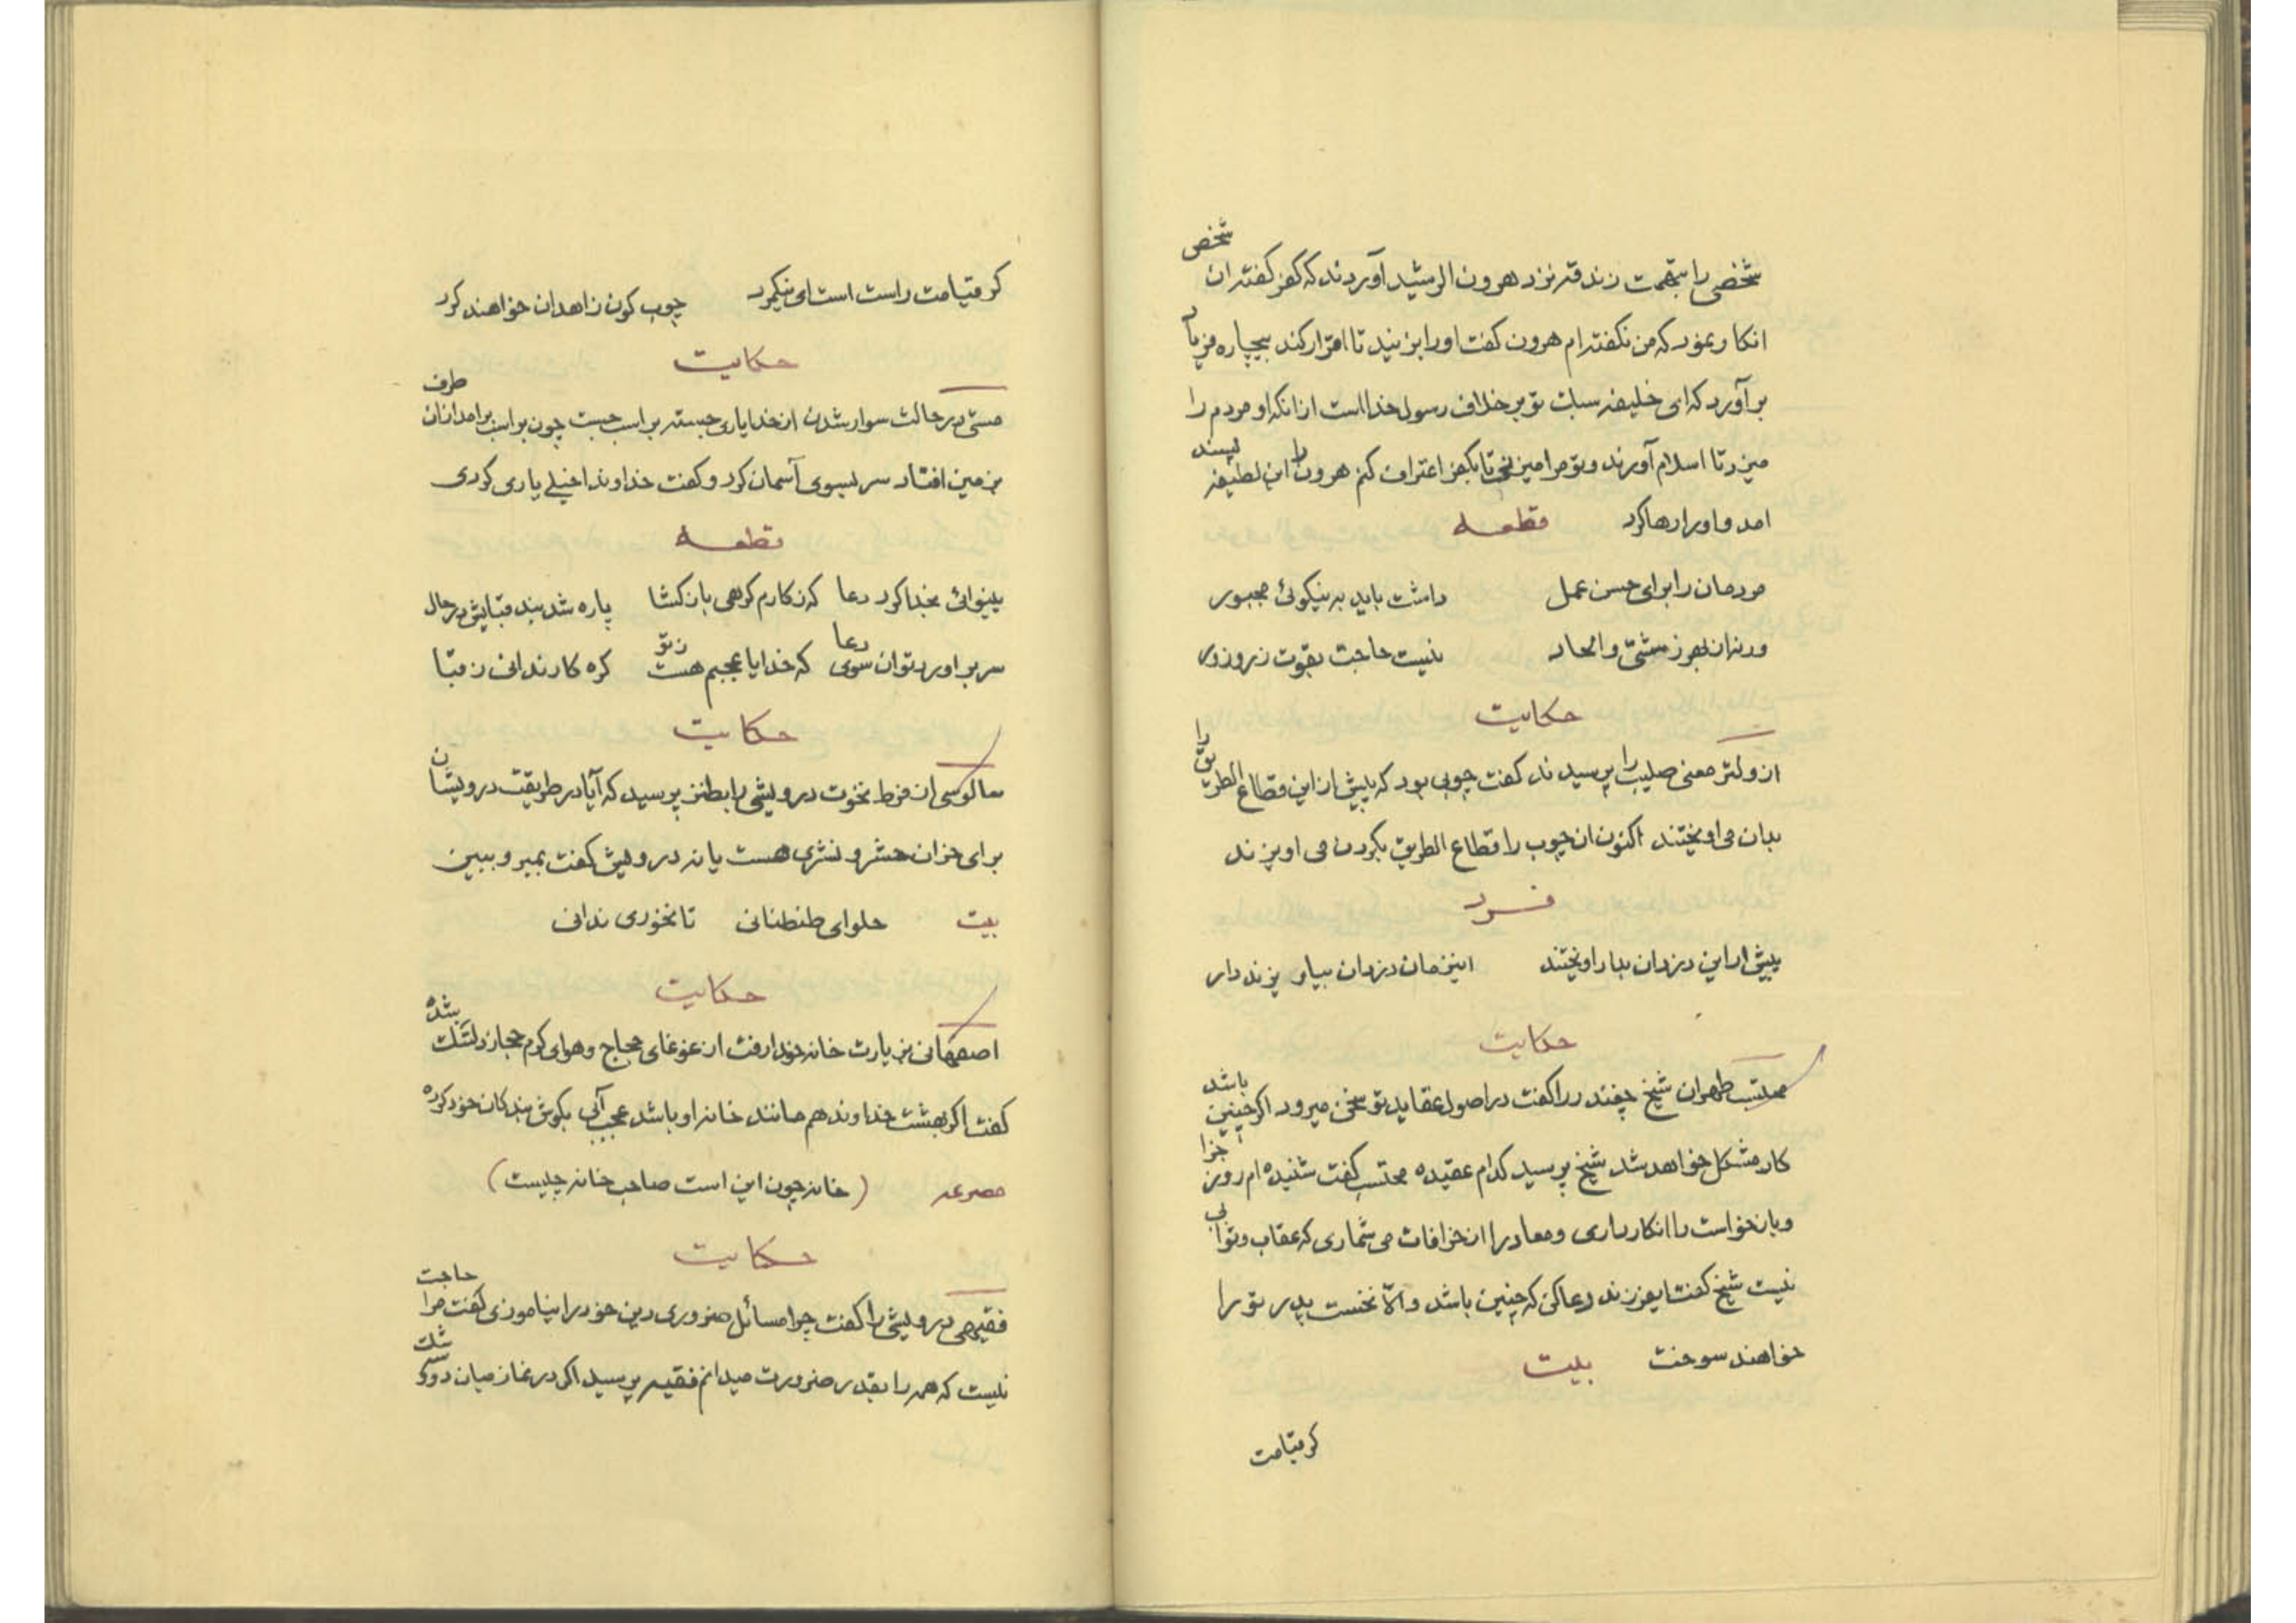 شخصی را بتهمت زندقه نزد هرون الرشید آوردند که کفر گفته ان شخص
انکار نمود که من نگفته ام هرون گفت او را بزنید تا اقرار کند بیچاره فریاد
بر آورد که ای خلیفه سبات تو بر خلاف رسول خدا است از انکه او مردم را
میزد تا اسلام آورند و تو مرا میزنی تا بکفر اعتراف کنم هرون را این لطیفه پسند
امد و او را رها کرد قطعه
مردمان را برای حسن عمل داشت باید به نیکوئی مجبور
ورنه از بهر زشتی و الحاد نیست حاجت بقوت زر و زور
حکایت
از ولتر معنی صلیب را پرسیدند گفت چوبی بود که پیش از این قطاع الطریق را
بدان می اویختند اکنون ان چوب را قطاع الطریق بگردن می اویزند
فرد
پیش از این دزدان بدار اویختند این زمان دزدان بیاویزند دار
حکایت
محتسب طهران شیخ چغندر را گفت در اصول عقاید تو سخن میرود اگر چنین باشد
کار مشکل خواهد شد شیخ پرسید کدام عقیده محتسب گفت شنیده ام روز جزا
و بازخواست را انکار داری و معاد را از خرافات می شماری که عقاب و ثوابی
نیست شیخ گفت ایفرزند دعا کن که چنین باشد والّا نخست پدر تو را
خواهند سوخت بیت
کر قیامت
کر قیامت راست است ای نیکمرد چوب کون زاهدان خواهند کرد
حکایت
مستی در حالت سوار شدن از خدا یاری جسته بر اسب جست چون بر اسب برامد ازان طرف
بزمین افتاد سر بسوی آسمان کرد و گفت خداوندا خیلے یاری کردی
قطعه
بینوائی بخدا کرد دعا که ز کارم کرهی باز کشا پاره شد بند قبایش در حال
سر براورد توان سوی دعا که خدایا عجبم هست ز تو کره کار ندانی ز قبا
حکایت
سالوسی از فرط نخوت درویشی را بطنز پرسید که آیا در طریقت درویشان
برای خران حشر و نشری هست یا نه درویش گفت بمیر و ببین
بیت حلوای طنطنانی تا نخوری ندانی
حکایت
اصفهانی بزیارت خانه خدا رفت از غوغای حجاج و هوای کرم حجاز دلتنگ شده
گفت اکر بهشت خداوند هم مانند خانه او باشد عجب آبی بگوش بندکان خود کرده
مصرعه (خانه چون این است صاحب خانه چیست)
حکایت
فقیهی درویشی را گفت چرا مسائل ضروری دین خود را نیاموزی گفت مرا حاجت
نیست که همه را بقدر ضرورت میدانم فقیه پرسید اکر در نماز میان دو و سه شک